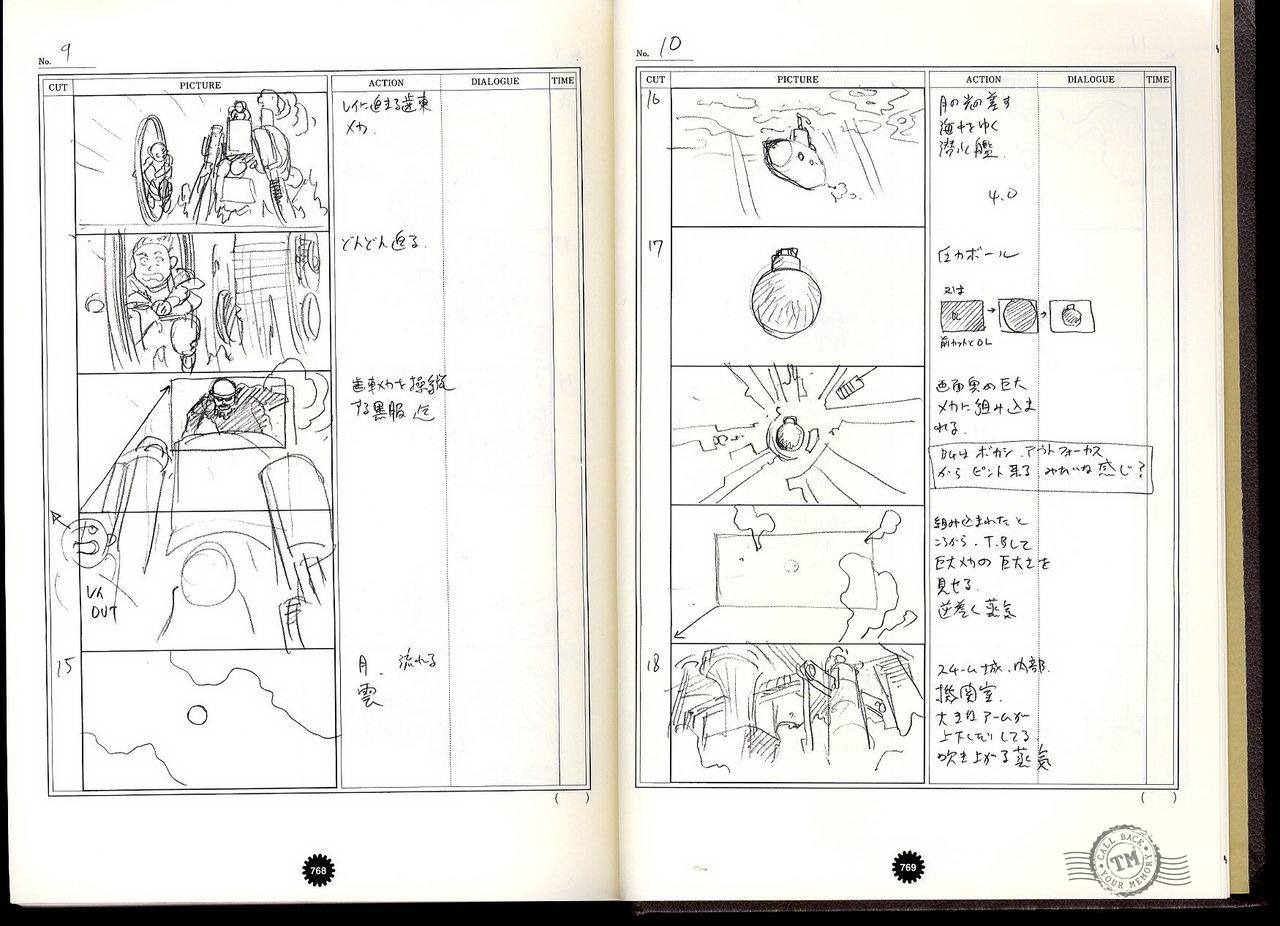 No. 9
CUT PICTURE ACTION DIALOGUE TIME
レイに迫まる歯車
メカ.
どんどん迫る.
歯車メカを操縦
する黒服
レイ
OUT
15
月. 流れる
雲
( )
768
No. 10
CUT PICTURE ACTION DIALOGUE TIME
16
月の光の差す
海中をゆく
潜水艦.
4.0
17
圧力ボール
又は
前カットとOL
画面奥の巨大
メカに組み込ま
れる.
BGは ボカシ. アウトフォーカス
から ピント来る みたいな感じ?
組み込まれたと
ころから. T.Bして
巨大メカの 巨大さを
見せる.
逆巻く 蒸気
18
スチーム城、内部.
機関室.
大きな アームが
上下したりしてる.
吹き上がる蒸気
( )
769
CALL BACK
TM
YOUR MEMORY